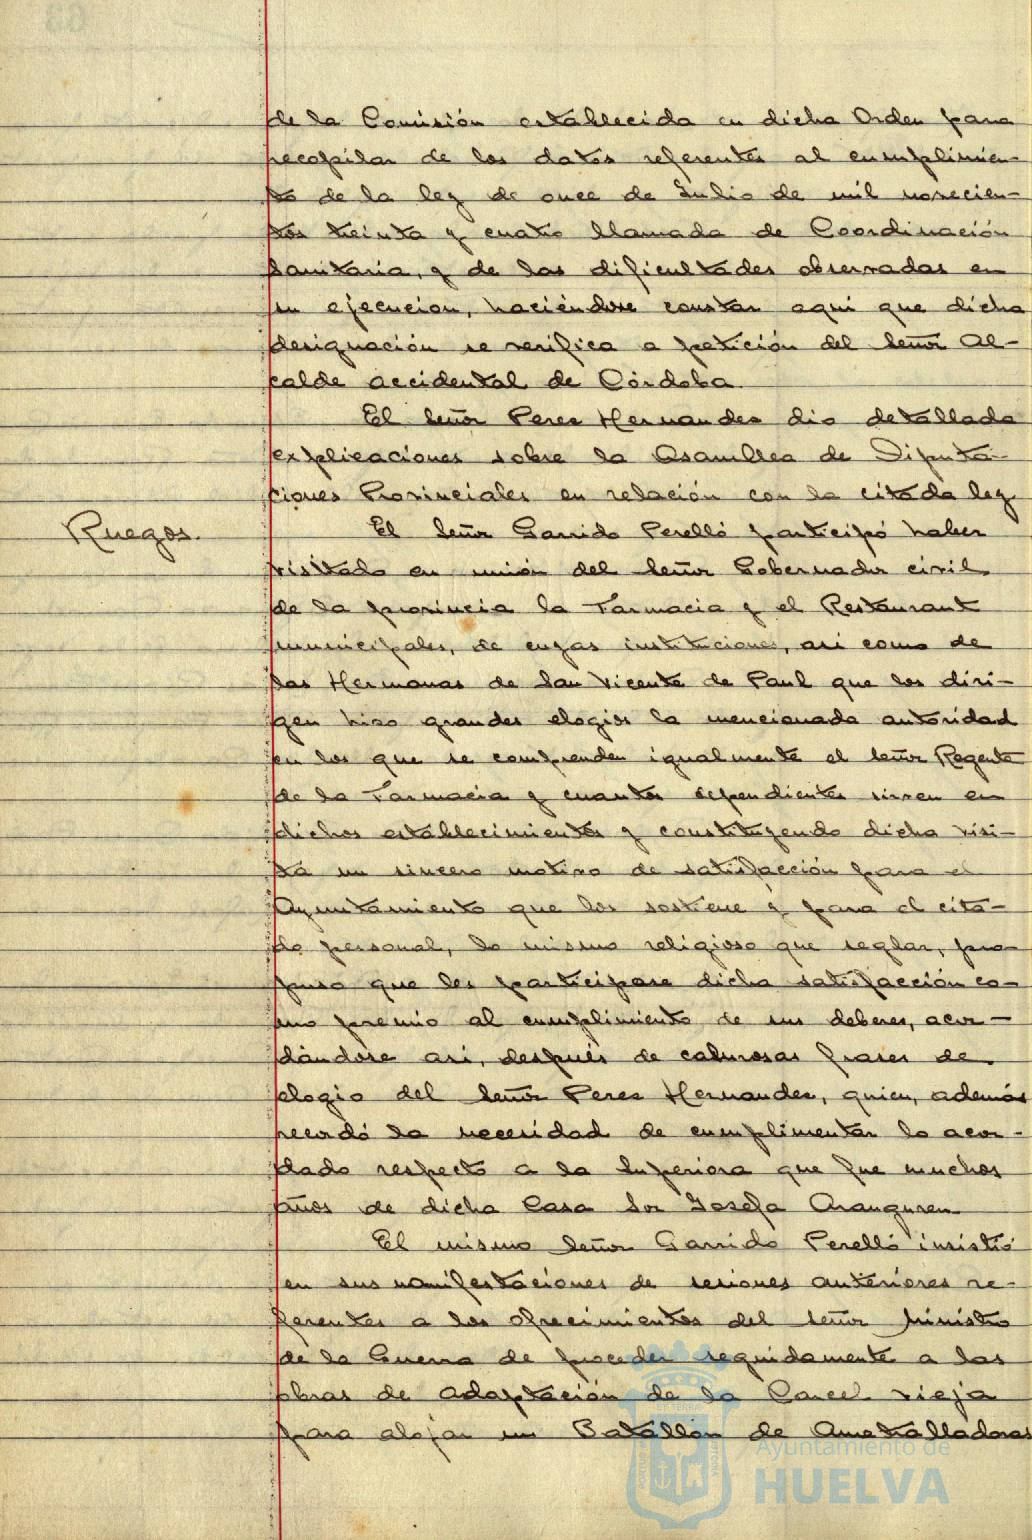 de la Comisión establecida en dicha Orden para
recopilar de los datos referentes al cumplimien-
to de la ley de once de Julio de mil novecien-
tos treinta y cuatro llamada de Coordinación
Sanitaria, y de las dificultades observadas en
su ejecucion, haciéndose constar aqui que dicha
designación se verifica a petición del Señor Al-
calde accidental de Córdoba.
El Señor Perez Hernandez dio detallada
explicaciones sobre la Asamblea de Diputa-
ciones Provinciales en relación con la citada ley.
Ruegos.
El Señor Garrido Perelló participó haber
visitado en unión del Señor Gobernador civil
de la provincia la Farmacia y el Restaurant
municipales, de cuyas instituciones, asi como de
las Hermanas de San Vicente de Paul que los diri-
gen hizo grandes elogios la mencionada autoridad
en los que se comprenden igualmente el Señor Regente
de la Farmacia y cuantos dependientes sirven en
dichos establecimientos y constituyendo dicha visi-
ta un sincero motivo de satisfacción para el
Ayuntamiento que los sostiene y para el cita-
do personal, lo mismo religioso que seglar, pro-
puso que les participase dicha satisfacción co-
mo premio al cumplimiento de sus deberes, acor-
dándose asi, después de calurosas frases de
elogio del Señor Perez Hernandez, quien, además
recordó la necesidad de cumplimentar lo acor-
dado respecto a la Superiora que fue muchos
años de dicha Casa Sor Josefa Aranguren
El mismo Señor Garrido Perelló insistió
en sus manifestaciones de sesiones anteriores re-
ferentes a los ofrecimientos del Señor Ministro
de la Guerra de proceder seguidamente a las
obras de adaptación de la Carcel vieja
para alojar un Batallón de Ametralladoras
Ayuntamiento de
HUELVA